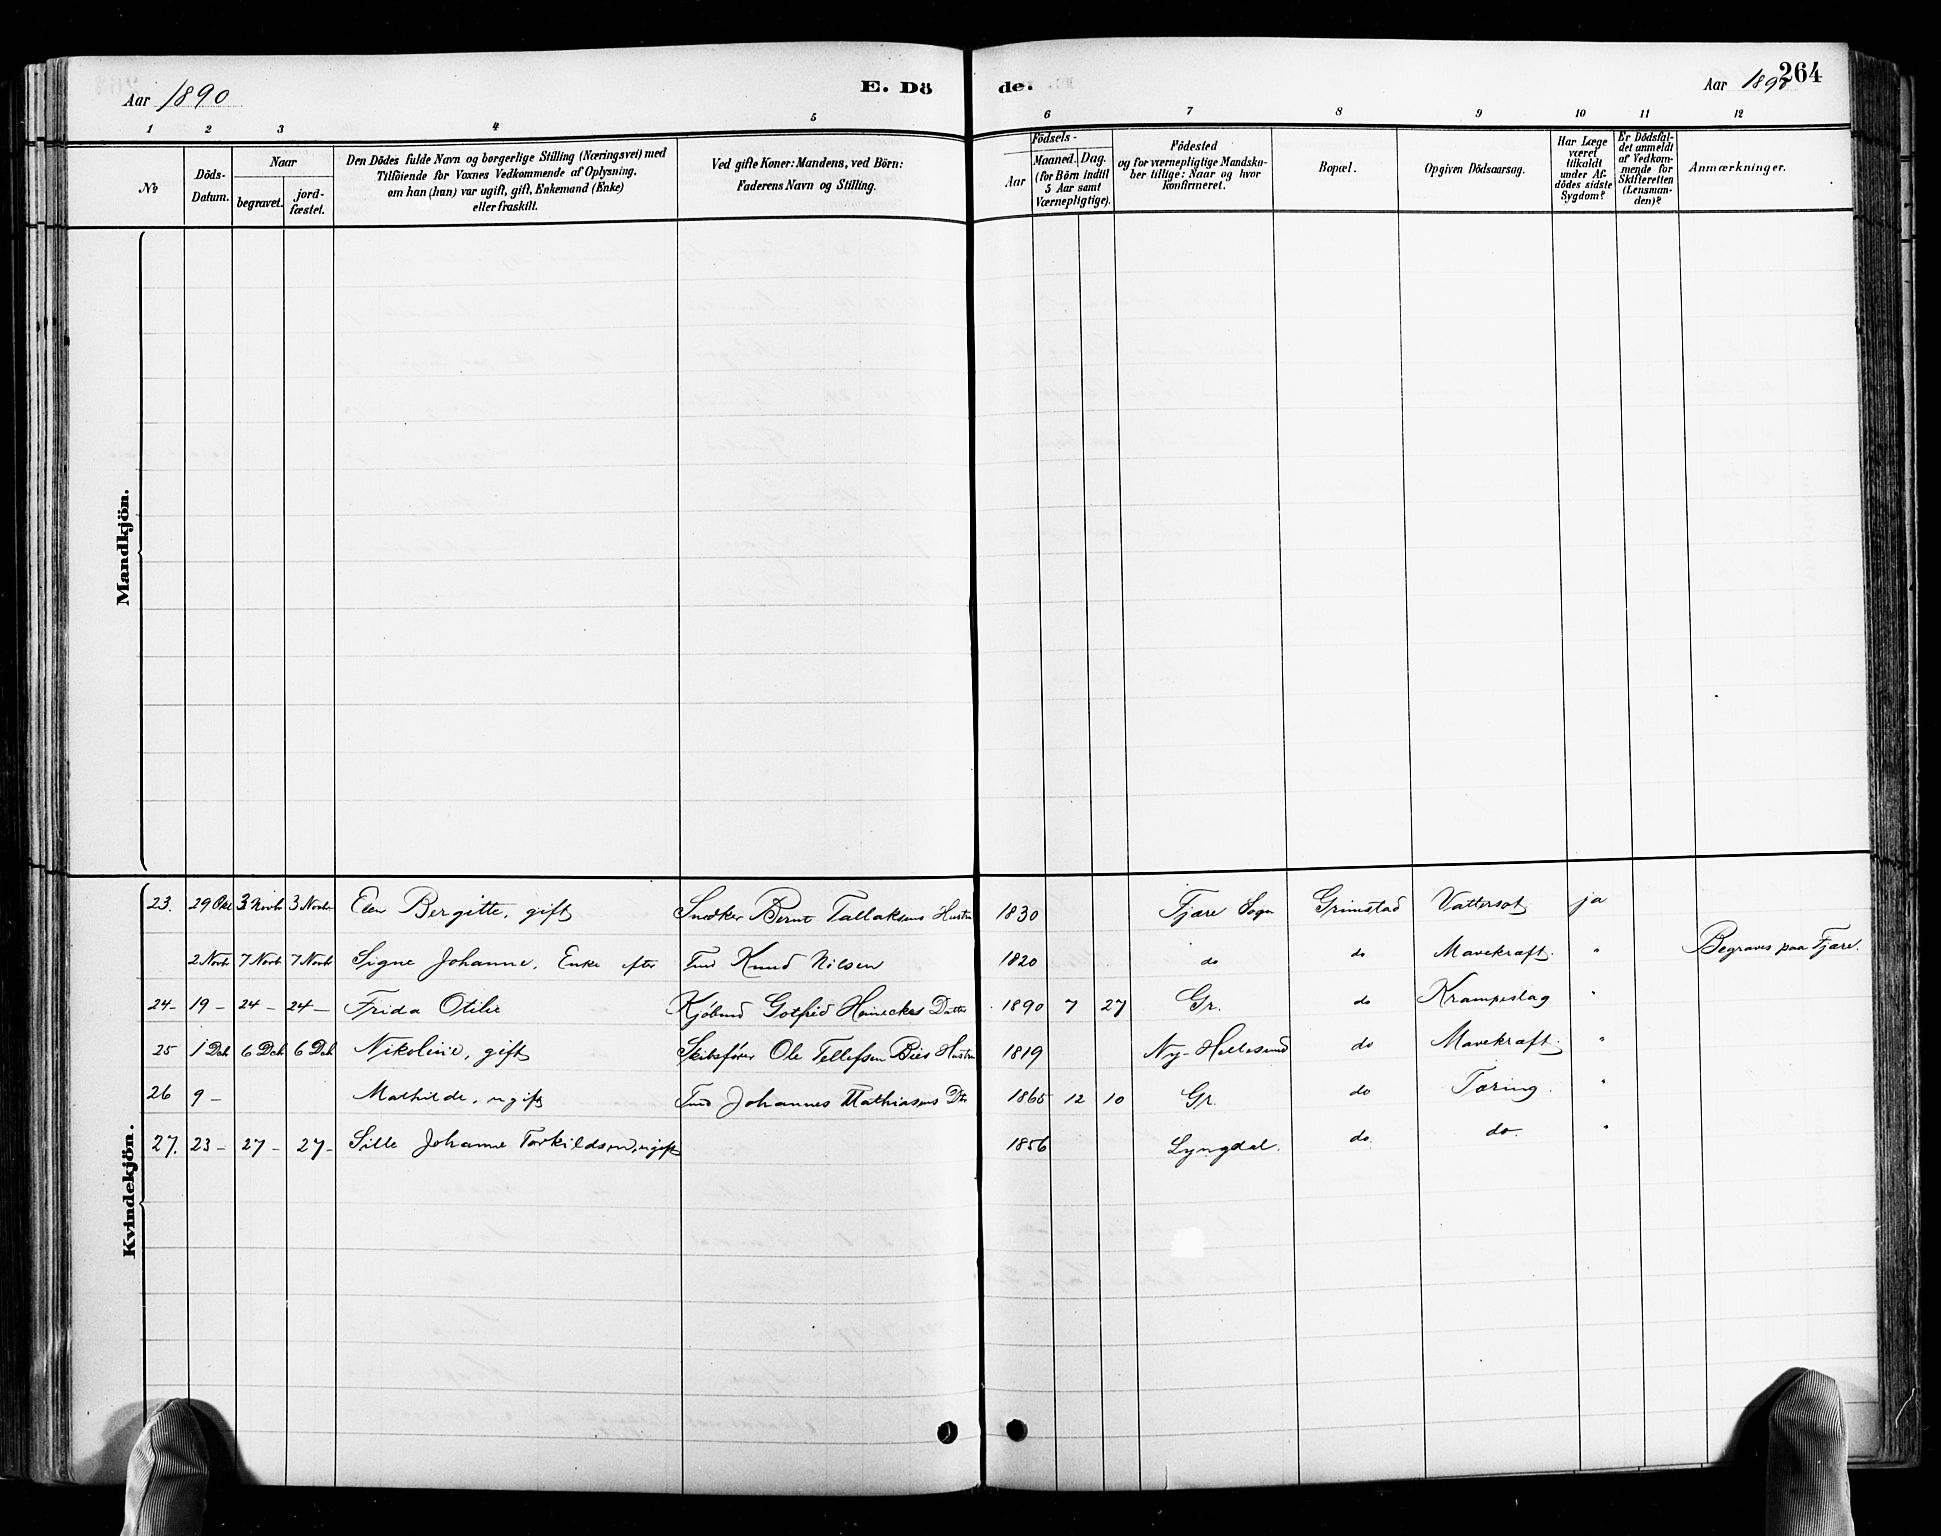 Aar 1890
E. Dö
de.
Aar 1890
264
1 2 3 4 5 6 7 8 9 10 11 12
№
Döds-
Datum.
Naar
begravet.
jord-
fæstet.
Den Dödes fulde Navn og borgerlige Stilling (Næringsvei) med
Tilföiende for Voxnes Vedkommende af Oplysning,
om han (hun) var ugift, gift, Enkemand (Enke)
eller fraskilt.
Ved gifte Koner: Mandens, ved Börn:
Faderens Navn og Stilling.
Födsels-
Aar
Maaned. Dag.
(for Börn indtil
5 Aar samt
Værnepligtige).
Födested
og for værnepligtige Mandska-
ber tillige: Naar og hvor
konfirmeret.
Bopæl.
Opgiven Dödsaarsag.
Har Læge
været
tilkaldt
under Af-
dödes sidste
Sygdom?
Er Dödsfal-
det anmeldt
af Vedkom-
mende for
Skifteretten
(Lensman-
den)?
Anmærkninger.
Mandkjön.
Kvindekjön.
23. 29 Okt 3 Novb 3 Novb Elen Bergitte, gift Snedker Bernt Tallaksens Hustru 1830 Fjære Sogn Grimstad Vattersot ja
2 Novb 7 Novb 7 Novb Signe Johanne, Enke efter Tmd Knud Nilsen 1820 do do Mavekræft. " Begraves paa Fjære.
24- 19 - 24 - 24 - Frida Otilie Kjöbmd Gotfred Heineckes Datter 1890 7 27 Gr. do Krampeslag "
25 1 Dcb 6 Dcb 6 Dcb Nikoline, gift Skibsförer Ole Tellefsen Bies Hustru 1819 Ny-Hellesund do Mavekræft. "
26 9 - Mathilde, ugift Tmd Johannes Mathiasens Dtr 1865 12 10 Gr. do Tæring. "
27. 23 - 27 - 27 - Sille Johanne Torkildsen, ugift 1856 Lyngdal. do. do. "